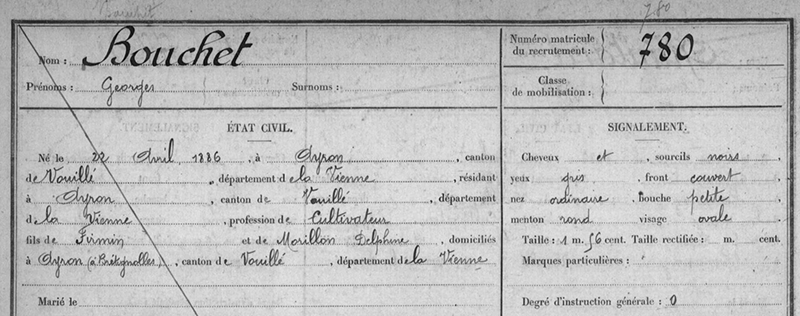 Bouchet 780
Nom : Bouchet
Prénoms : Georges Surnoms :
Numéro matricule
du recrutement : 780
Classe
de mobilisation :
ÉTAT CIVIL.
Né le 22 Avril 1886, à Ayron, canton
de Vouillé, département de la Vienne, résidant
à Ayron, canton de Vouillé, département
de la Vienne, profession de Cultivateur
fils de Firmin et de Morillon Delphine, domiciliés
à Ayron (à Brétignolles), canton de Vouillé, département de la Vienne
Marié le
SIGNALEMENT.
Cheveux et, sourcils noirs
yeux gris, front couvert
nez ordinaire, bouche petite
menton rond visage ovale
Taille : 1 m. 56 cent. Taille rectifiée : m. cent.
Marques particulières :
Degré d'instruction générale : 0